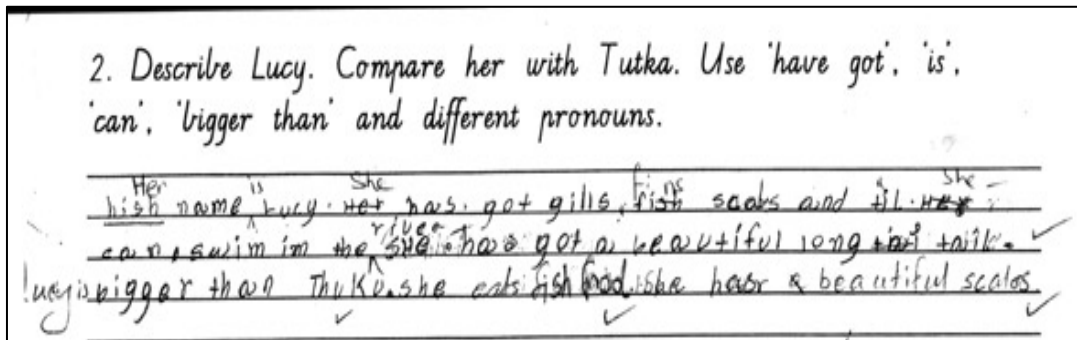 2. Describe Lucy. Compare her with Tutka. Use 'have got', 'is',
'can', 'bigger than' and different pronouns.
Her is She fins She
hish name Lucy. Her has. got gills, fish scabs and til. Her
river
can, swim im the she. has got a beautiful long tait taik.
lucy is bigger than Thuku. she eats fish food. she hasr a beautiful scales